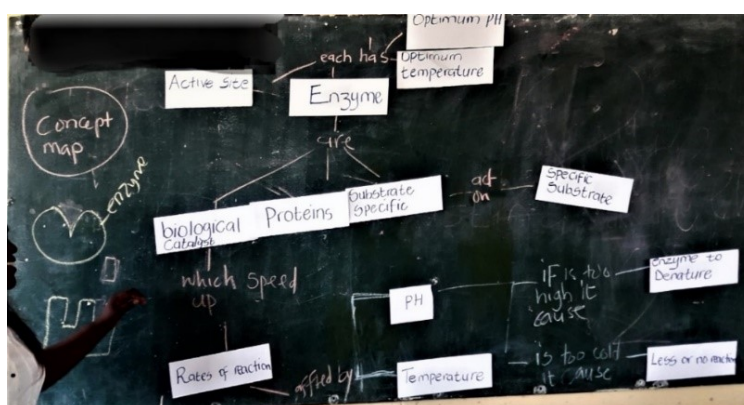 Optimum PH
each has
Optimum
temperature
Active Site
Enzyme
Concept
map
are
enzyme
biological
Catalyst
Proteins
Substrate
Specific
act
on
Specific
Substrate
which speed
up
PH
if is too
high it
cause
enzyme to
Denature
Rates of reaction
Temperature
is too cold
it cause
Less or no reaction